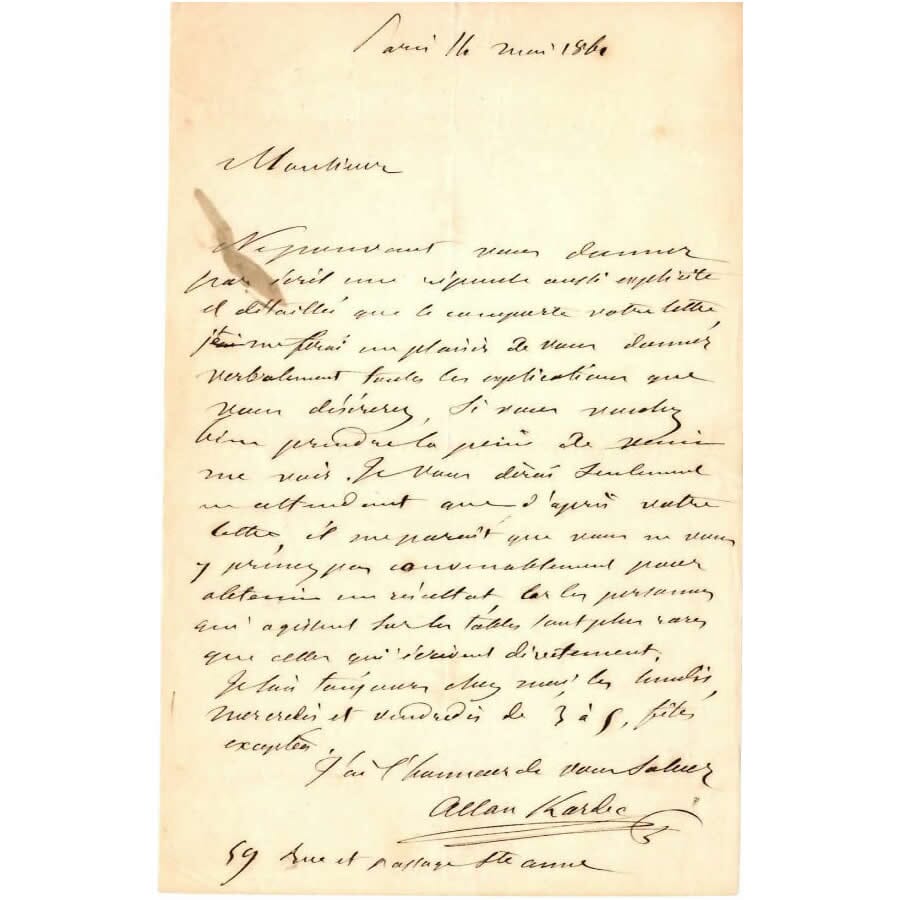 Paris 16 mai 1860
Monsieur
Ne pouvant vous donner
par écrit une réponse aussi explicite
et détaillée que le comporte votre lettre
me ferai un plaisir de vous donner
verbalement toutes les explications que
vous désirerez, si vous voulez
bien prendre la peine de venir
me voir. Je vous dirai seulement
en attendant que d'après votre
lettre, il me parait que vous ne vous
y prenez pas convenablement pour
obtenir un résultat car les personnes
qui agissent sur les tables sont plus rares
que celles qui écrivent directement.
Je suis toujours chez moi les lundis,
mercredis et vendredis de 3 à 5, fêtes
exceptées.
J'ai l'honneur de vous saluer
Allan Kardec
59 Rue et passage Ste anne